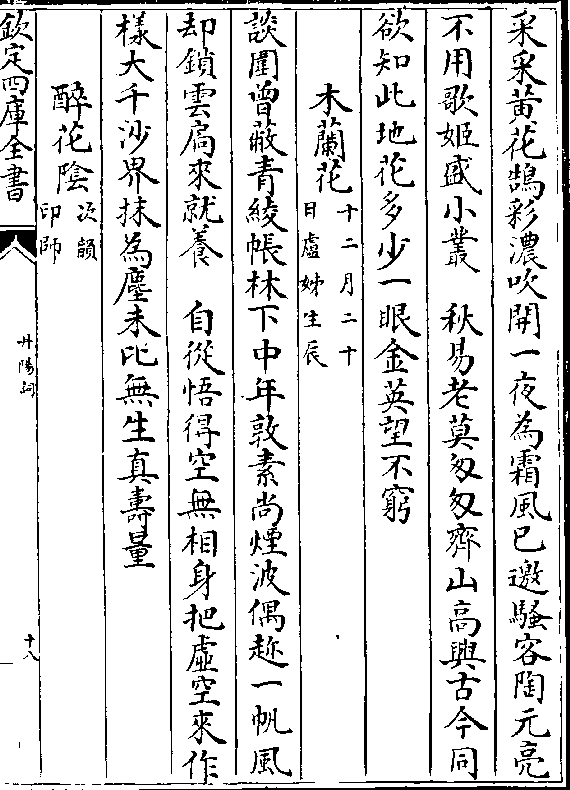 采采黄花鵠彩濃吹開一夜為霜風已邀騷客陶元亮
不用歌姬盛小叢　秋易老莫匆匆齊山高興古今同
欲知此地花多少一眼金英望不窮
木蘭花
十二月二十
日盧姊生辰
談圍曾蔽青綾帳林下中年敦素尚煙波偶趂一帆風
却鎖雲扃來就養　自從悟得空無相身把虛空來作
樣大千沙界抹為塵未比無生真壽量
醉花陰
次韻
印師
欽定四庫全書
丹陽詞
十八